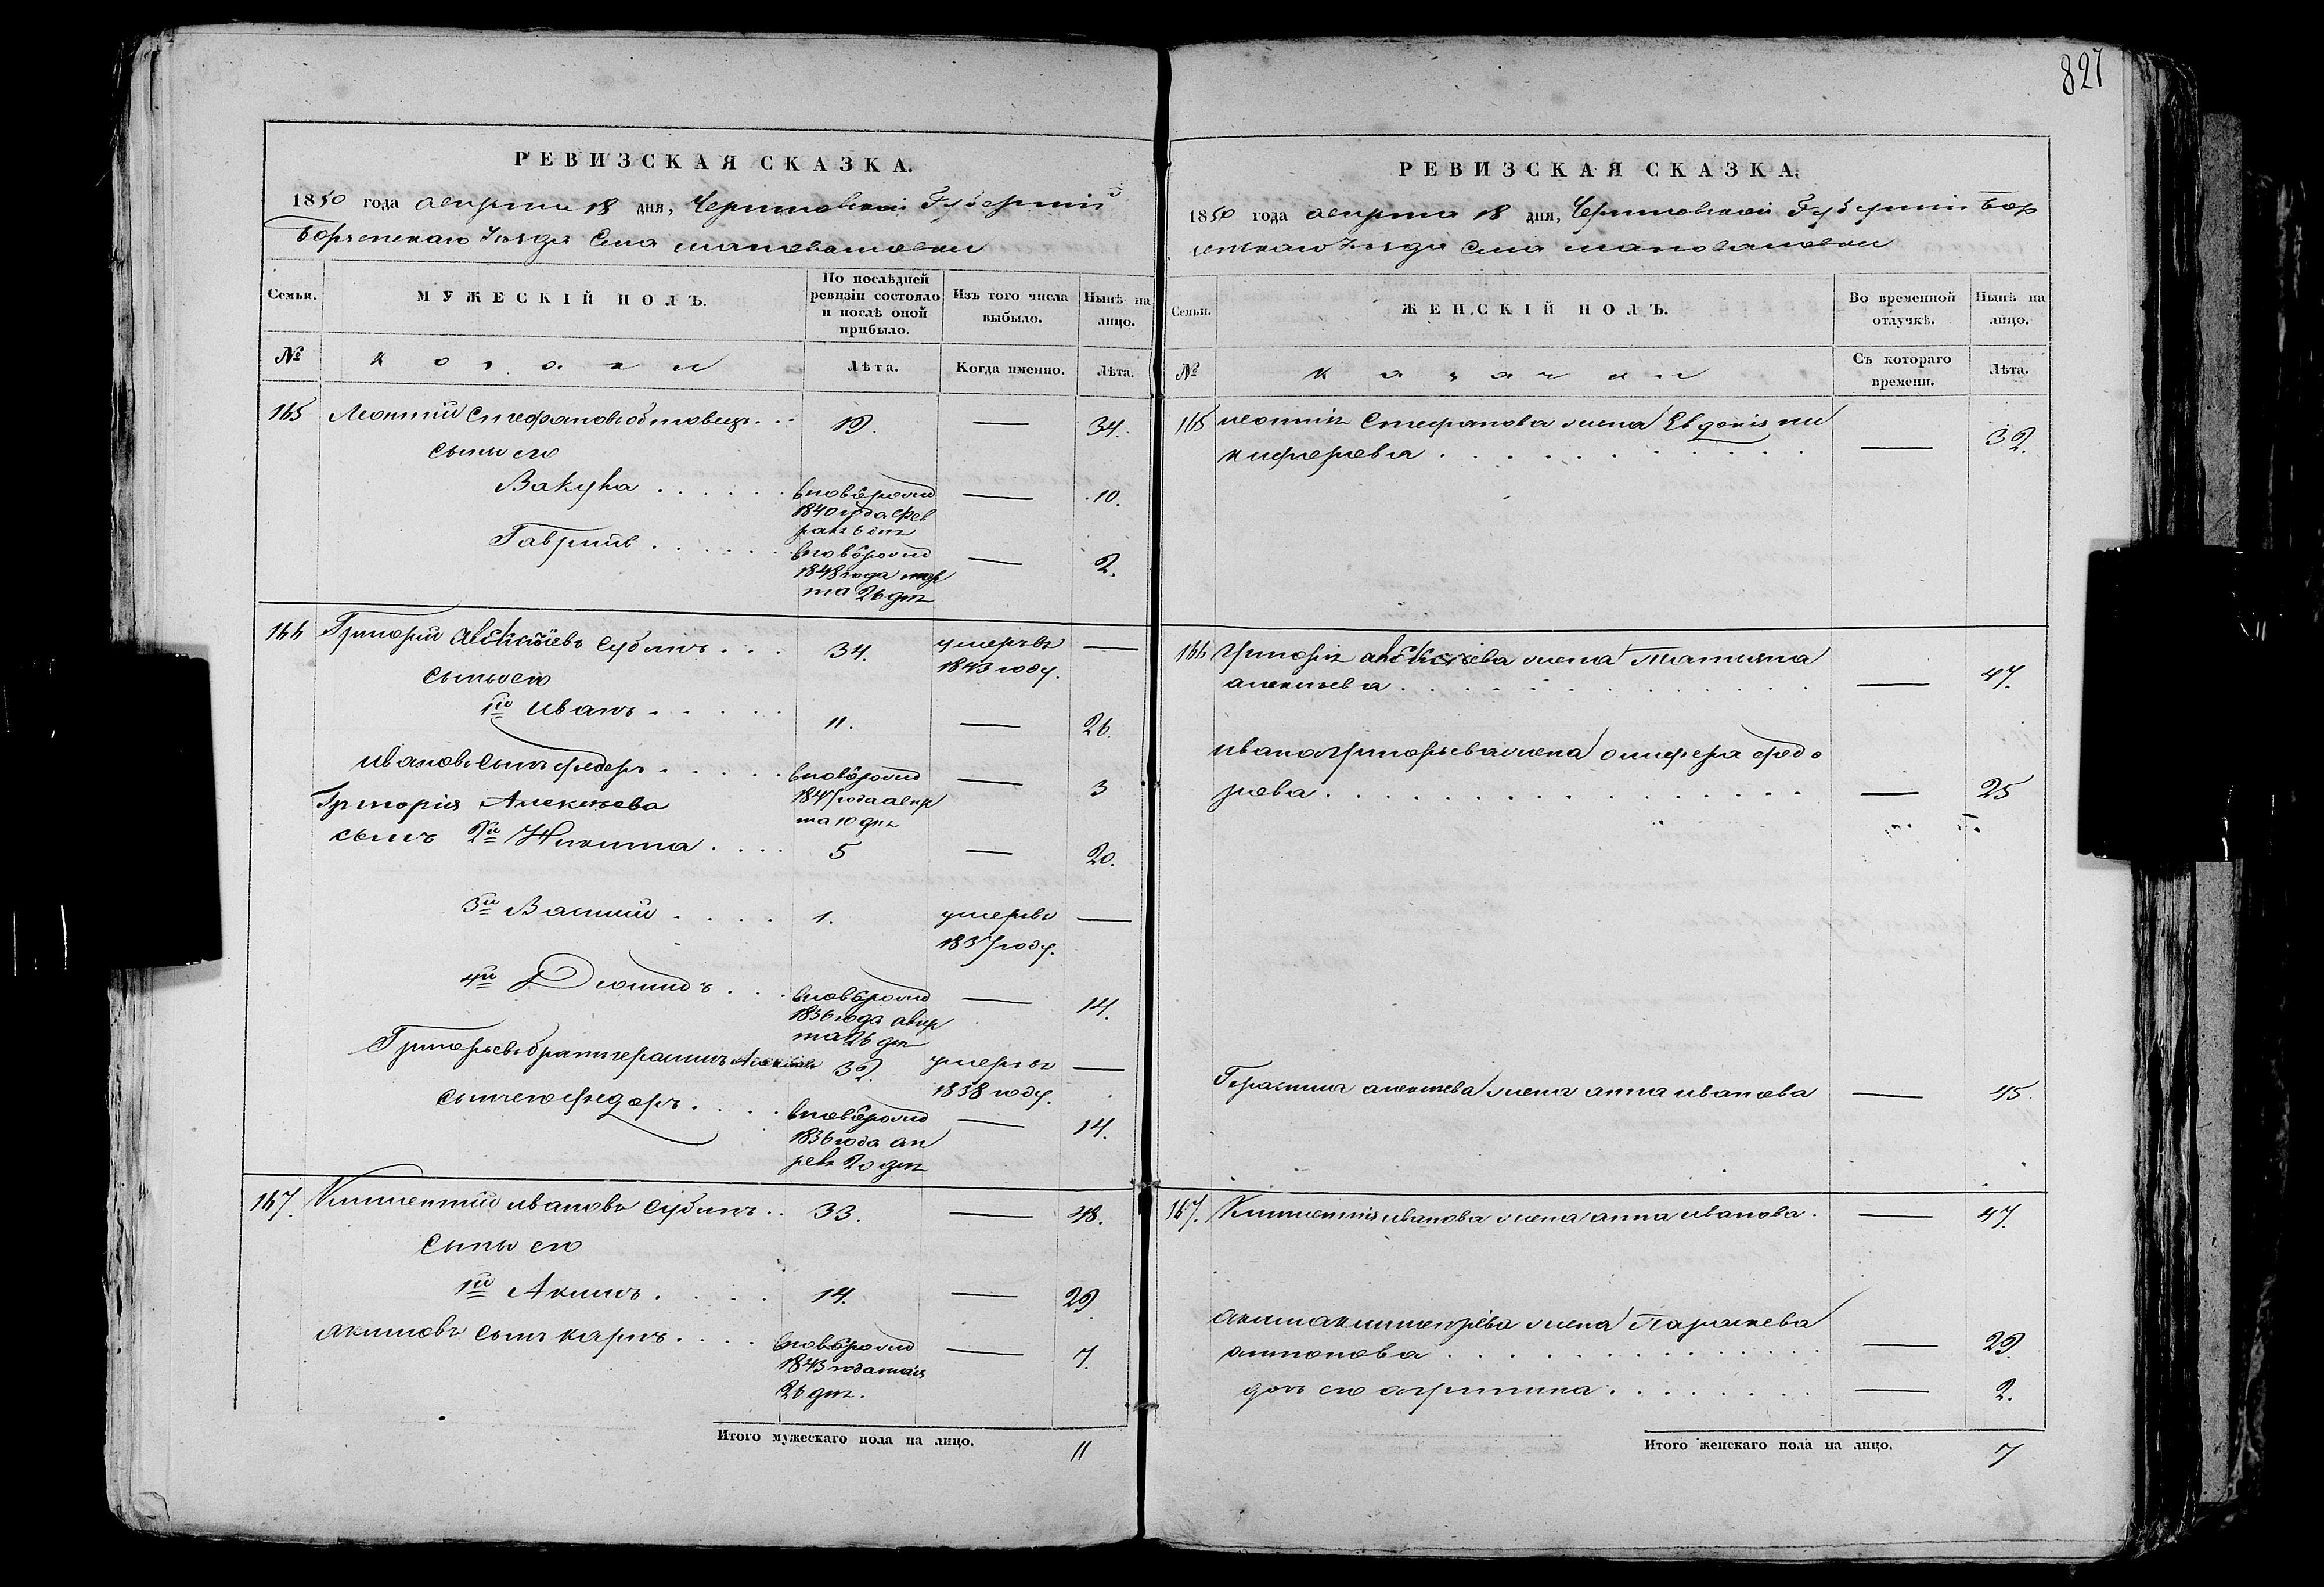 827
РЕВИЗСКАЯ СКАЗКА.
1850 года августа 18 дня, Черниговской Губерніи
Борзенскаго уезда Села
Семьи.
МУЖЕСКІЙ ПОЛЪ.
По послѣдней ревизіи состояло и послѣ оной прибыло.
Изъ того числа выбыло.
Нынѣ на лицо.
№
козаки
Лѣта.
Когда именно.
Лѣта.
165 Леонтій Стефановъ 19. — 34.
сыны его
Вакула вновь рожд 1840 года фев — 10.
Гавріилъ вновь рожд 1848 года мар та 26 дня — 2.
166 Григорій Алексѣевъ Субинъ 34. умеръ въ 1843 году. —
сыны его
1й Иванъ 11. — 26.
Ивановъ сынъ Федоръ вновь рожд 1847 года авгу ста 10 дня — 3
Григорія Алексѣева
сынъ 2й Никита 5 — 20.
3й Василій 1. умеръ въ 1837 году. —
4й Діомидъ вновь рожд 1836 года авгу ста 26 дня — 14.
Григорьевъ братъ Герасимъ Алексѣевъ 32. умеръ въ 1838 году. —
сынъ его Федоръ вновь рожд 1836 года ап реля 20 дня — 14.
167. Климентій Ивановъ Субинъ 33. — 48.
сыны его
1й Акимъ 14. — 29
Акимовъ сынъ Карпъ вновь рожд 1843 года мая 26 дня. — 7.
Итого мужескаго пола на лицо. 11
РЕВИЗСКАЯ СКАЗКА.
1850 года августа 18 дня, Черниговской Губерніи Бор
зенскаго уезда Села
Семьи.
ЖЕНСКІЙ ПОЛЪ.
Во временной отлучкѣ.
Нынѣ на лицо.
№
казачки
Съ котораго времени.
Лѣта.
165 Леонтія Стефанова жена Евдокія ни
кифорова — 32.
166 Григорія Алексѣева жена Татьяна
алексѣева — 47.
Ивана Григорьева жена федо
рова — 25
Герасима алексѣева жена анна иванова — 45
167. Климентія иванова жена анна иванова — 47.
Акима климентіева жена Параскева
антонова — 29.
дочь его агрипина — 2.
Итого женскаго пола на лицо. 7